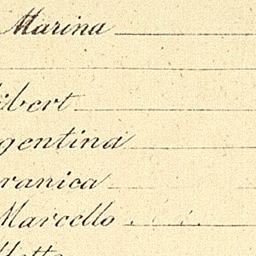 Marina
ibert
gentina
ranica
Marcello